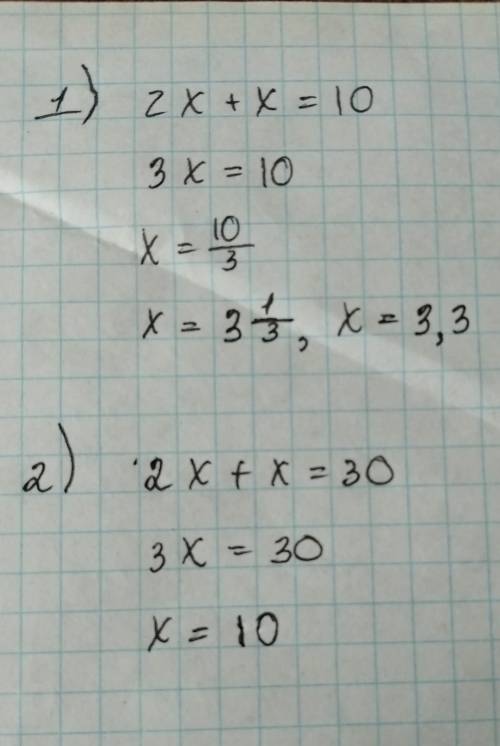 1) 2x + x = 10
3x = 10
x = 10/3
x = 3 1/3, x = 3,3
2) 2x + x = 30
3x = 30
x = 10